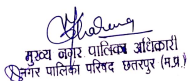 मुख्य नगर पालिका अधिकारी
नगर पालिका परिषद छतरपुर (म.प्र.)